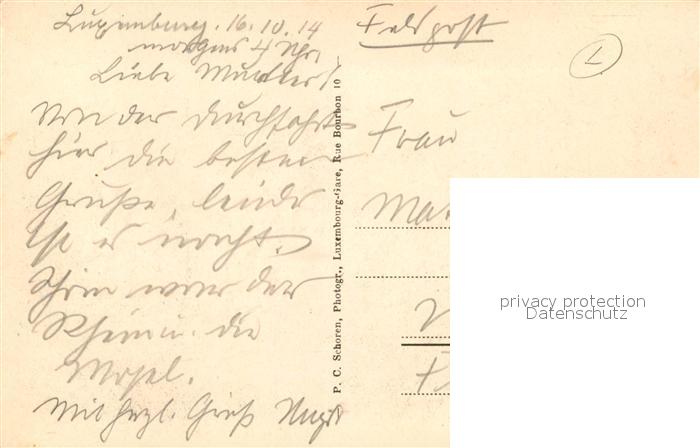 Luxemburg. 16.10.14
morgens 4 Uhr.
Liebe Mutter!
Von der Durchfahrt
hier die besten
Grüße, leider
ist es Nacht.
Schön war der
Rhein u. die
Mosel.
Mit herzl. Gruß
Feldpost
L
Frau
P. C. Schoren, Photogr., Luxembourg-Gare, Rue Bourbon 10
privacy protection
Datenschutz